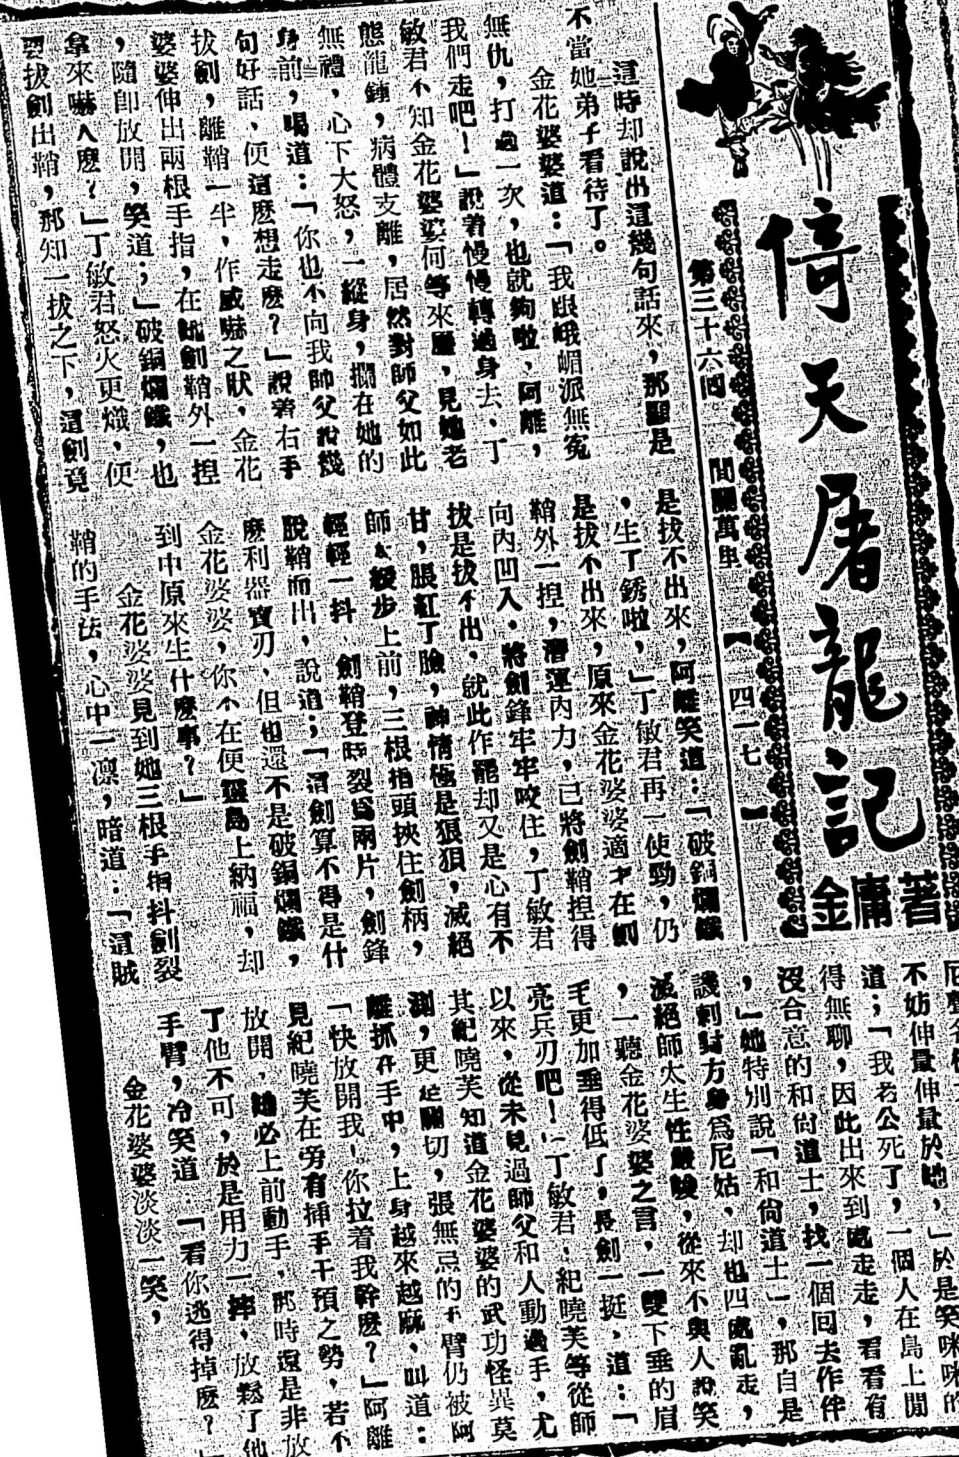 倚天屠龍記
金庸著
第三十六回　間關萬里
【四一七】
這時却說出這幾句話來，那還是
不當她弟子看待了。
金花婆婆道：「我跟峨嵋派無寃
無仇，打過一次，也就夠啦，阿離，
我們走吧！」說着慢慢轉過身去、丁
敏君不知金花婆婆何等來歷，見她老
態龍鍾，病體支離，居然對師父如此
無禮，心下大怒，一縱身，攔在她的
身前，喝道：「你也不向我師父說幾
句好話，便這麽想走麽？」說着右手
拔劍，離鞘一半，作威嚇之狀，金花
婆婆伸出兩根手指，在她劍鞘外一揑
，隨卽放開，笑道；」破銅爛鐵，也
拿來嚇人麽？」丁敏君怒火更熾，便
要拔劍出鞘，那知一拔之下，這劍竟
是拔不出來，阿離笑道：「破銅爛鐵
，生了銹啦，」丁敏君再一使勁，仍
是拔不出來，原來金花婆婆適才在劍
鞘外一揑，潛運內力，已將劍鞘揑得
向內凹入，將劍鋒牢牢咬住，丁敏君
拔是拔不出，就此作罷却又是心有不
甘，脹紅了臉，神情極是狼狽，滅絕
師太緩步上前，三根指頭挾住劍柄，
輕輕一抖，劍鞘登時裂爲兩片，劍鋒
脫鞘而出，說道；「這劍算不得是什
麽利器寶刃，但也還不是破銅爛鐵，
金花婆婆，你不在便靈島上納福，却
到中原來生什麽事？」
金花婆婆見到她三根手指抖劍裂
鞘的手法，心中一凛，暗道：「這賊
不妨伸量伸量於她，」於是笑咪咪的
道；「我老公死了，一個人在島上閒
得無聊，因此出來到處走走，看看有
沒合意的和尙道士，找一個回去作伴
，」她特別說「和尙道士」，那自是
譏刺對方身爲尼姑，却也四處亂走，
滅絕師太生性嚴峻，從來不與人說笑
，一聽金花婆婆之言，一雙下垂的眉
毛更加垂得低了，長劍一挺，道：「
亮兵刃吧！」丁敏君，紀曉芙等從師
以來，從未見過師父和人動過手，尤
其紀曉芙知道金花婆婆的武功怪異莫
測，更是關切，張無忌的手臂仍被阿
離抓在手中，上身越來越麻，叫道：
「快放開我！你拉着我幹麽？」阿離
見紀曉芙在旁有揷手干預之勢，若不
放開，她必上前動手，那時還是非放
了他不可，於是用力一摔，放鬆了他
手臂，冷笑道：「看你逃得掉麽？」
金花婆婆淡淡一笑，